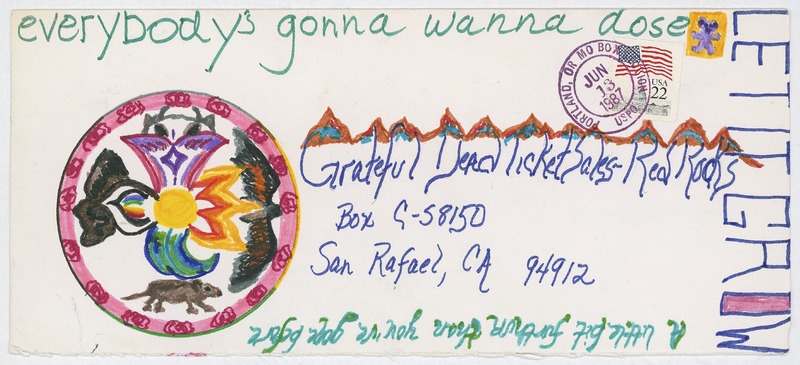 everybody's gonna wanna dose
PORTLAND, OR MO BOX
JUN
13
1987
USPO
USA
22
Grateful Dead Ticket Sales-Red Rocks
Box C-S8150
San Rafael, CA 94912
LET IT GROW
A little bit furthur than you've gone before